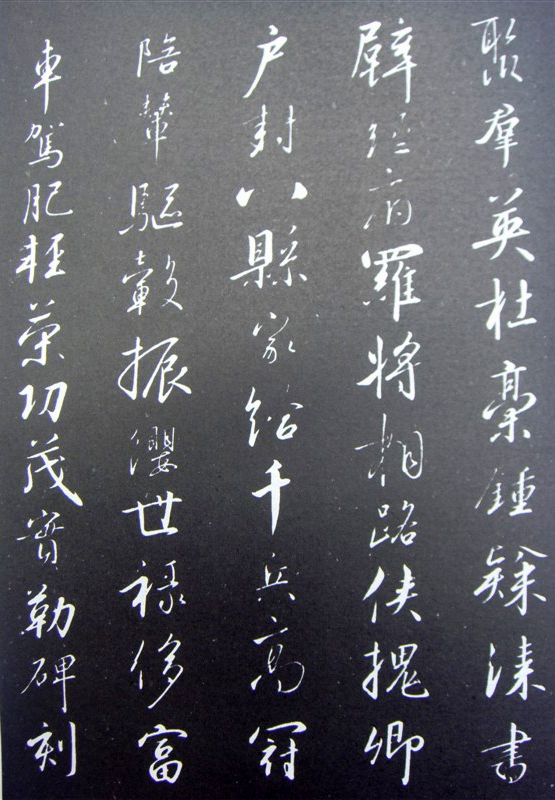 聚羣英杜槀鍾隸漆書
壁經府羅將相路俠槐卿
户封八縣家給千兵高冠
陪輦驅轂振纓世祿侈富
車駕肥輕策功茂實勒碑刻